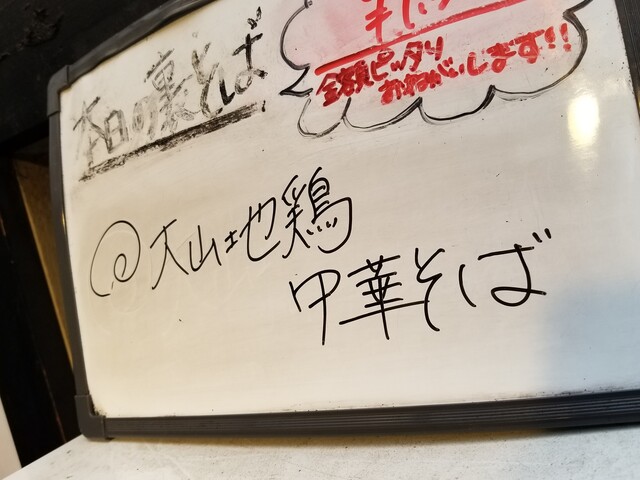 本日の裏そば
金額ピッタリ
おねがいします!!
@大山土地鶏
中華そば